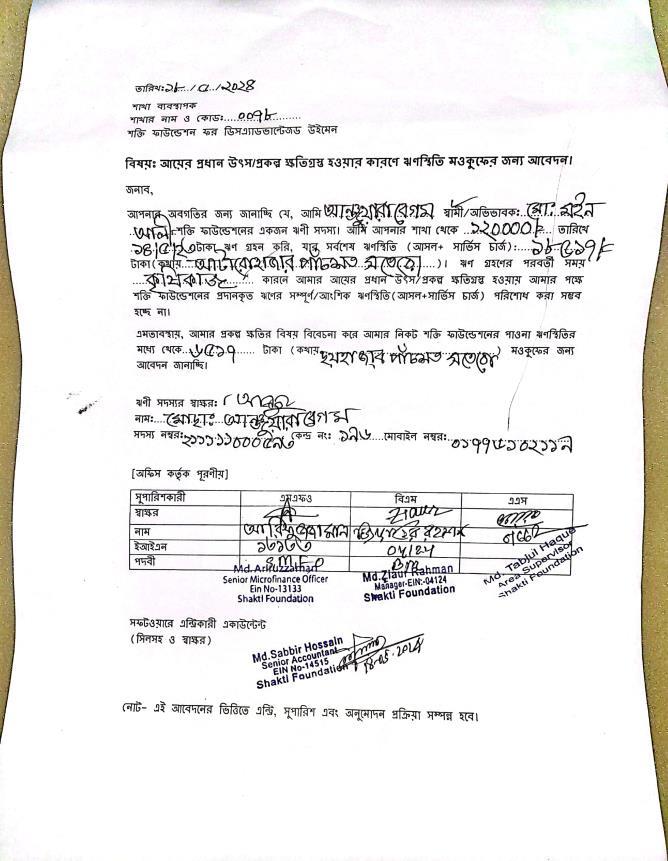 তারিখ:১৮/৫/২০২৪
শাখা ব্যবস্থাপক
শাখার নাম ও কোড:....০০৭৮.........
শক্তি ফাউন্ডেশন ফর ডিসএ্যাডভান্টেজড উইমেন
বিষয়: আয়ের প্রধান উৎস/প্রকল্প ক্ষতিগ্রস্থ হওয়ার কারণে ঋণস্থিতি মওকুফের জন্য আবেদন।
জনাব,
আপনার অবগতির জন্য জানাচ্ছি যে, আমি আনজুয়ারা বেগম স্বামী/অভিভাবক: মো: মইন
আলী শক্তি ফাউন্ডেশনের একজন ঋণী সদস্য। আমি আপনার শাখা থেকে ১২০০০০/= তারিখে
টাকা ঋণ গ্রহন করি, যার সর্বশেষ ঋণস্থিতি (আসল+ সার্ভিস চার্জ): ১৮৫১৭/=
টাকা (কথায় আঠারো হাজার পাঁচশত সতেরো)। ঋণ গ্রহণের পরবর্তী সময়
কারনে আমার আয়ের প্রধান উৎস/প্রকল্প ক্ষতিগ্রস্থ হওয়ায় আমার পক্ষে
শক্তি ফাউন্ডেশনের প্রদানকৃত ঋণের সম্পূর্ণ/আংশিক ঋণস্থিতি(আসল+সার্ভিস চার্জ) পরিশোধ করা সম্ভব
হচ্ছে না।
এমতাবস্থায়, আমার প্রকল্প ক্ষতির বিষয় বিবেচনা করে আমার নিকট শক্তি ফাউন্ডেশনের পাওনা ঋণস্থিতির
মধ্যে থেকে..৬৫১৭.... টাকা (কথায় ছয়হাজার পাঁচশত সতেরো) মওকুফের জন্য
আবেদন জানাচ্ছি।
ঋণী সদস্যর স্বাক্ষর:
নাম: মোছা: আনজুয়ারা বেগম
সদস্য নম্বর: কেন্দ্র নং: ১৯৬ মোবাইল নম্বর:
[অফিস কর্তৃক পূরণীয়]
সুপারিশকারী এমএফও বিএম এএস
স্বাক্ষর
নাম আরিফুজ্জামান জিয়াউর রহমান
ইআইএন ১৩১৩৩ ০৪১২৪
পদবী S.M.F.O BM
Md.Arifuzzaman
Senior Microfinance Officer
Ein No-13133
Shakti Foundation
Md.Ziaur Rahman
Manager-EIN:-04124
Shakti Foundation
Md. Tabjul Haque
Area Supervisor
Shakti Foundation
সফটওয়ারে এন্ট্রিকারী একাউন্টেন্ট
(সিলসহ ও স্বাক্ষর)
Md.Sabbir Hossain
Senior Accountant
EIN No-14515
Shakti Foundation
18-05-2024
নোট- এই আবেদনের ভিত্তিতে এন্ট্রি, সুপারিশ এবং অনুমোদন প্রক্রিয়া সম্পন্ন হবে।